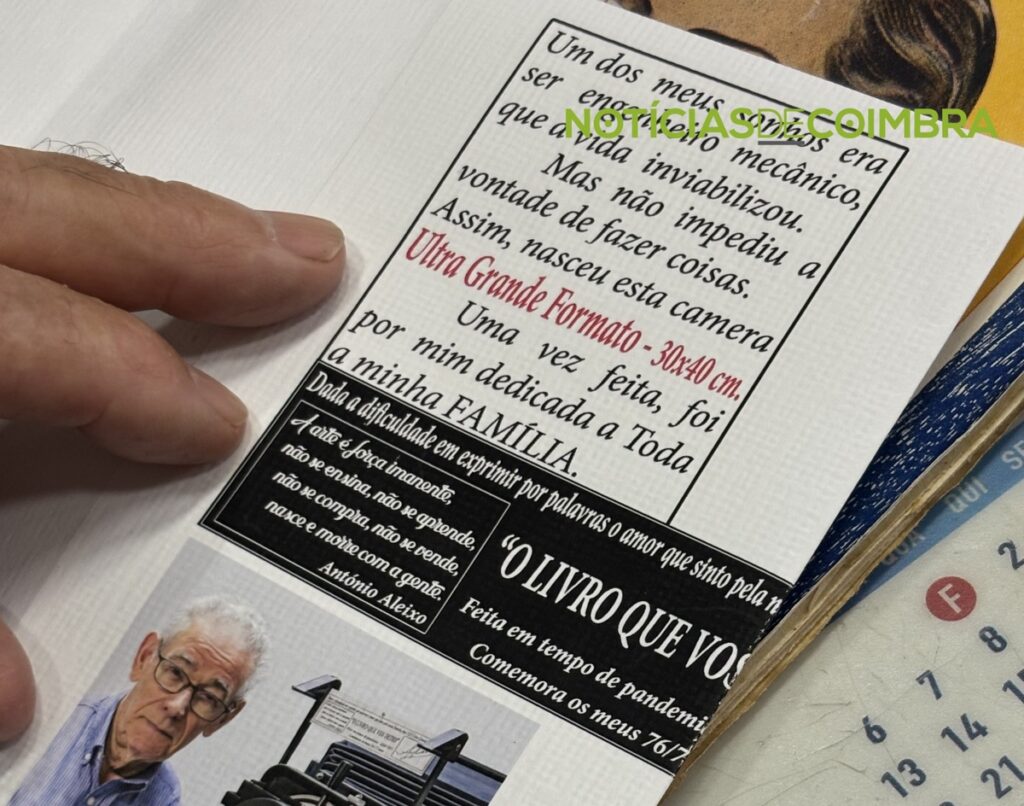 NOTÍCIASDECOIMBRA
Um dos meus sonhos era
ser engenheiro mecânico,
que a vida inviabilizou.
Mas não impediu a
vontade de fazer coisas.
Assim, nasceu esta camera
Ultra Grande Formato - 30x40 cm.
Uma vez feita, foi
por mim dedicada a Toda
a minha FAMÍLIA.
Dada a dificuldade em exprimir por palavras o amor que sinto pela
A arte é força imanente,
não se ensina, não se aprende,
não se compra, não se vende,
nasce e morre com a gente.
António Aleixo
“O LIVRO QUE VOS
Feita em tempo de
Comemora os meus 76/
QUI
F
8
7
6
14
13
21